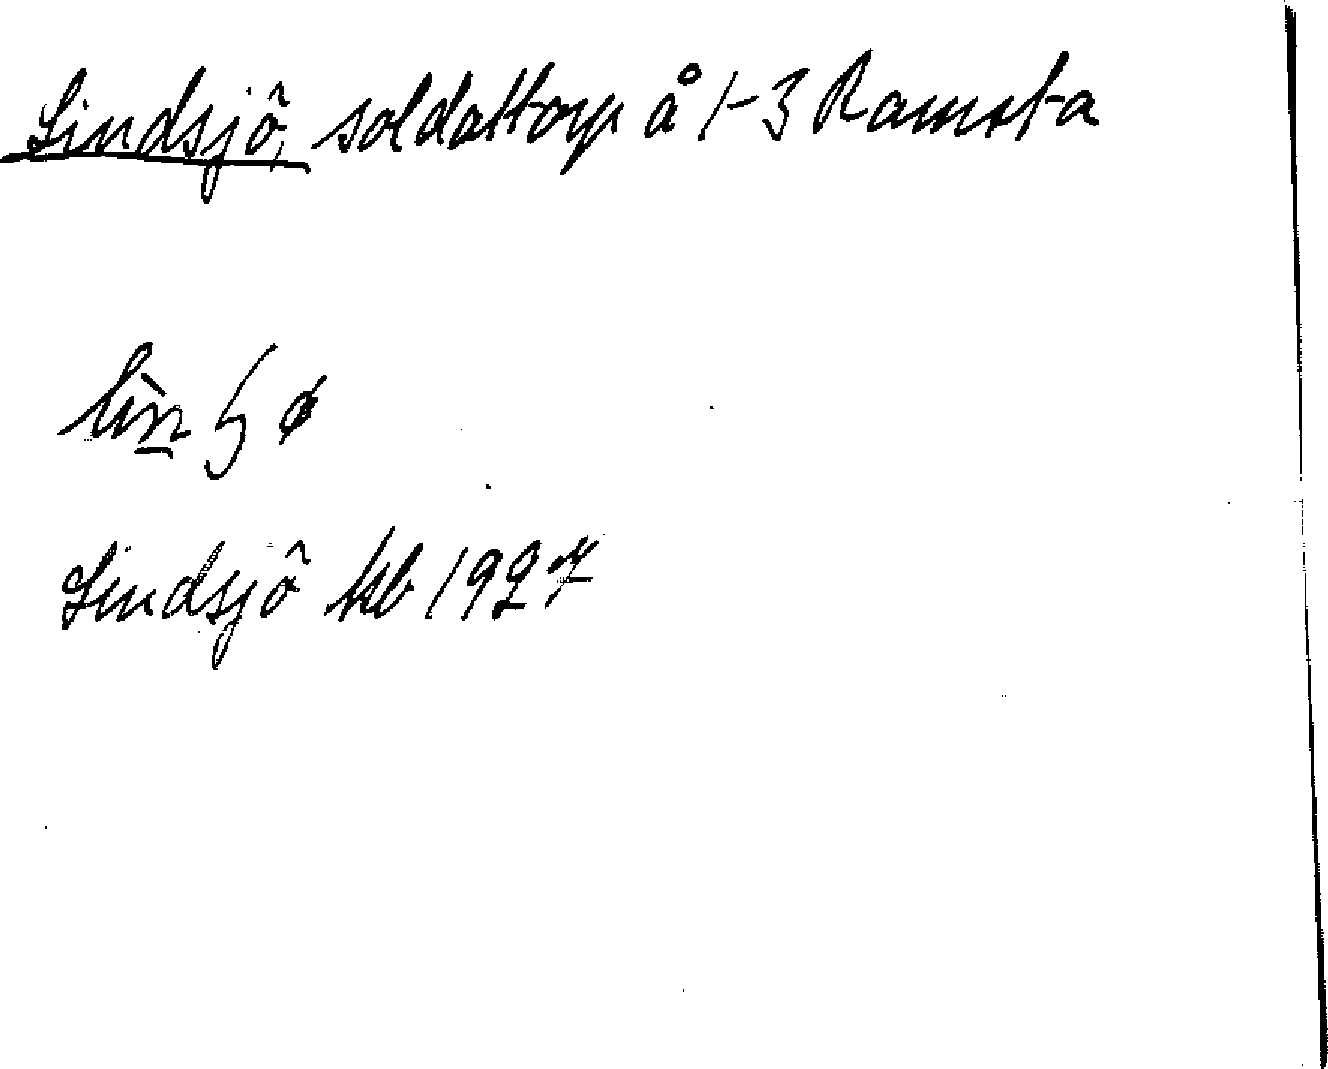 Lindsjö, soldattorp å 1-3 Ramsta
Lindsjö kb 1927